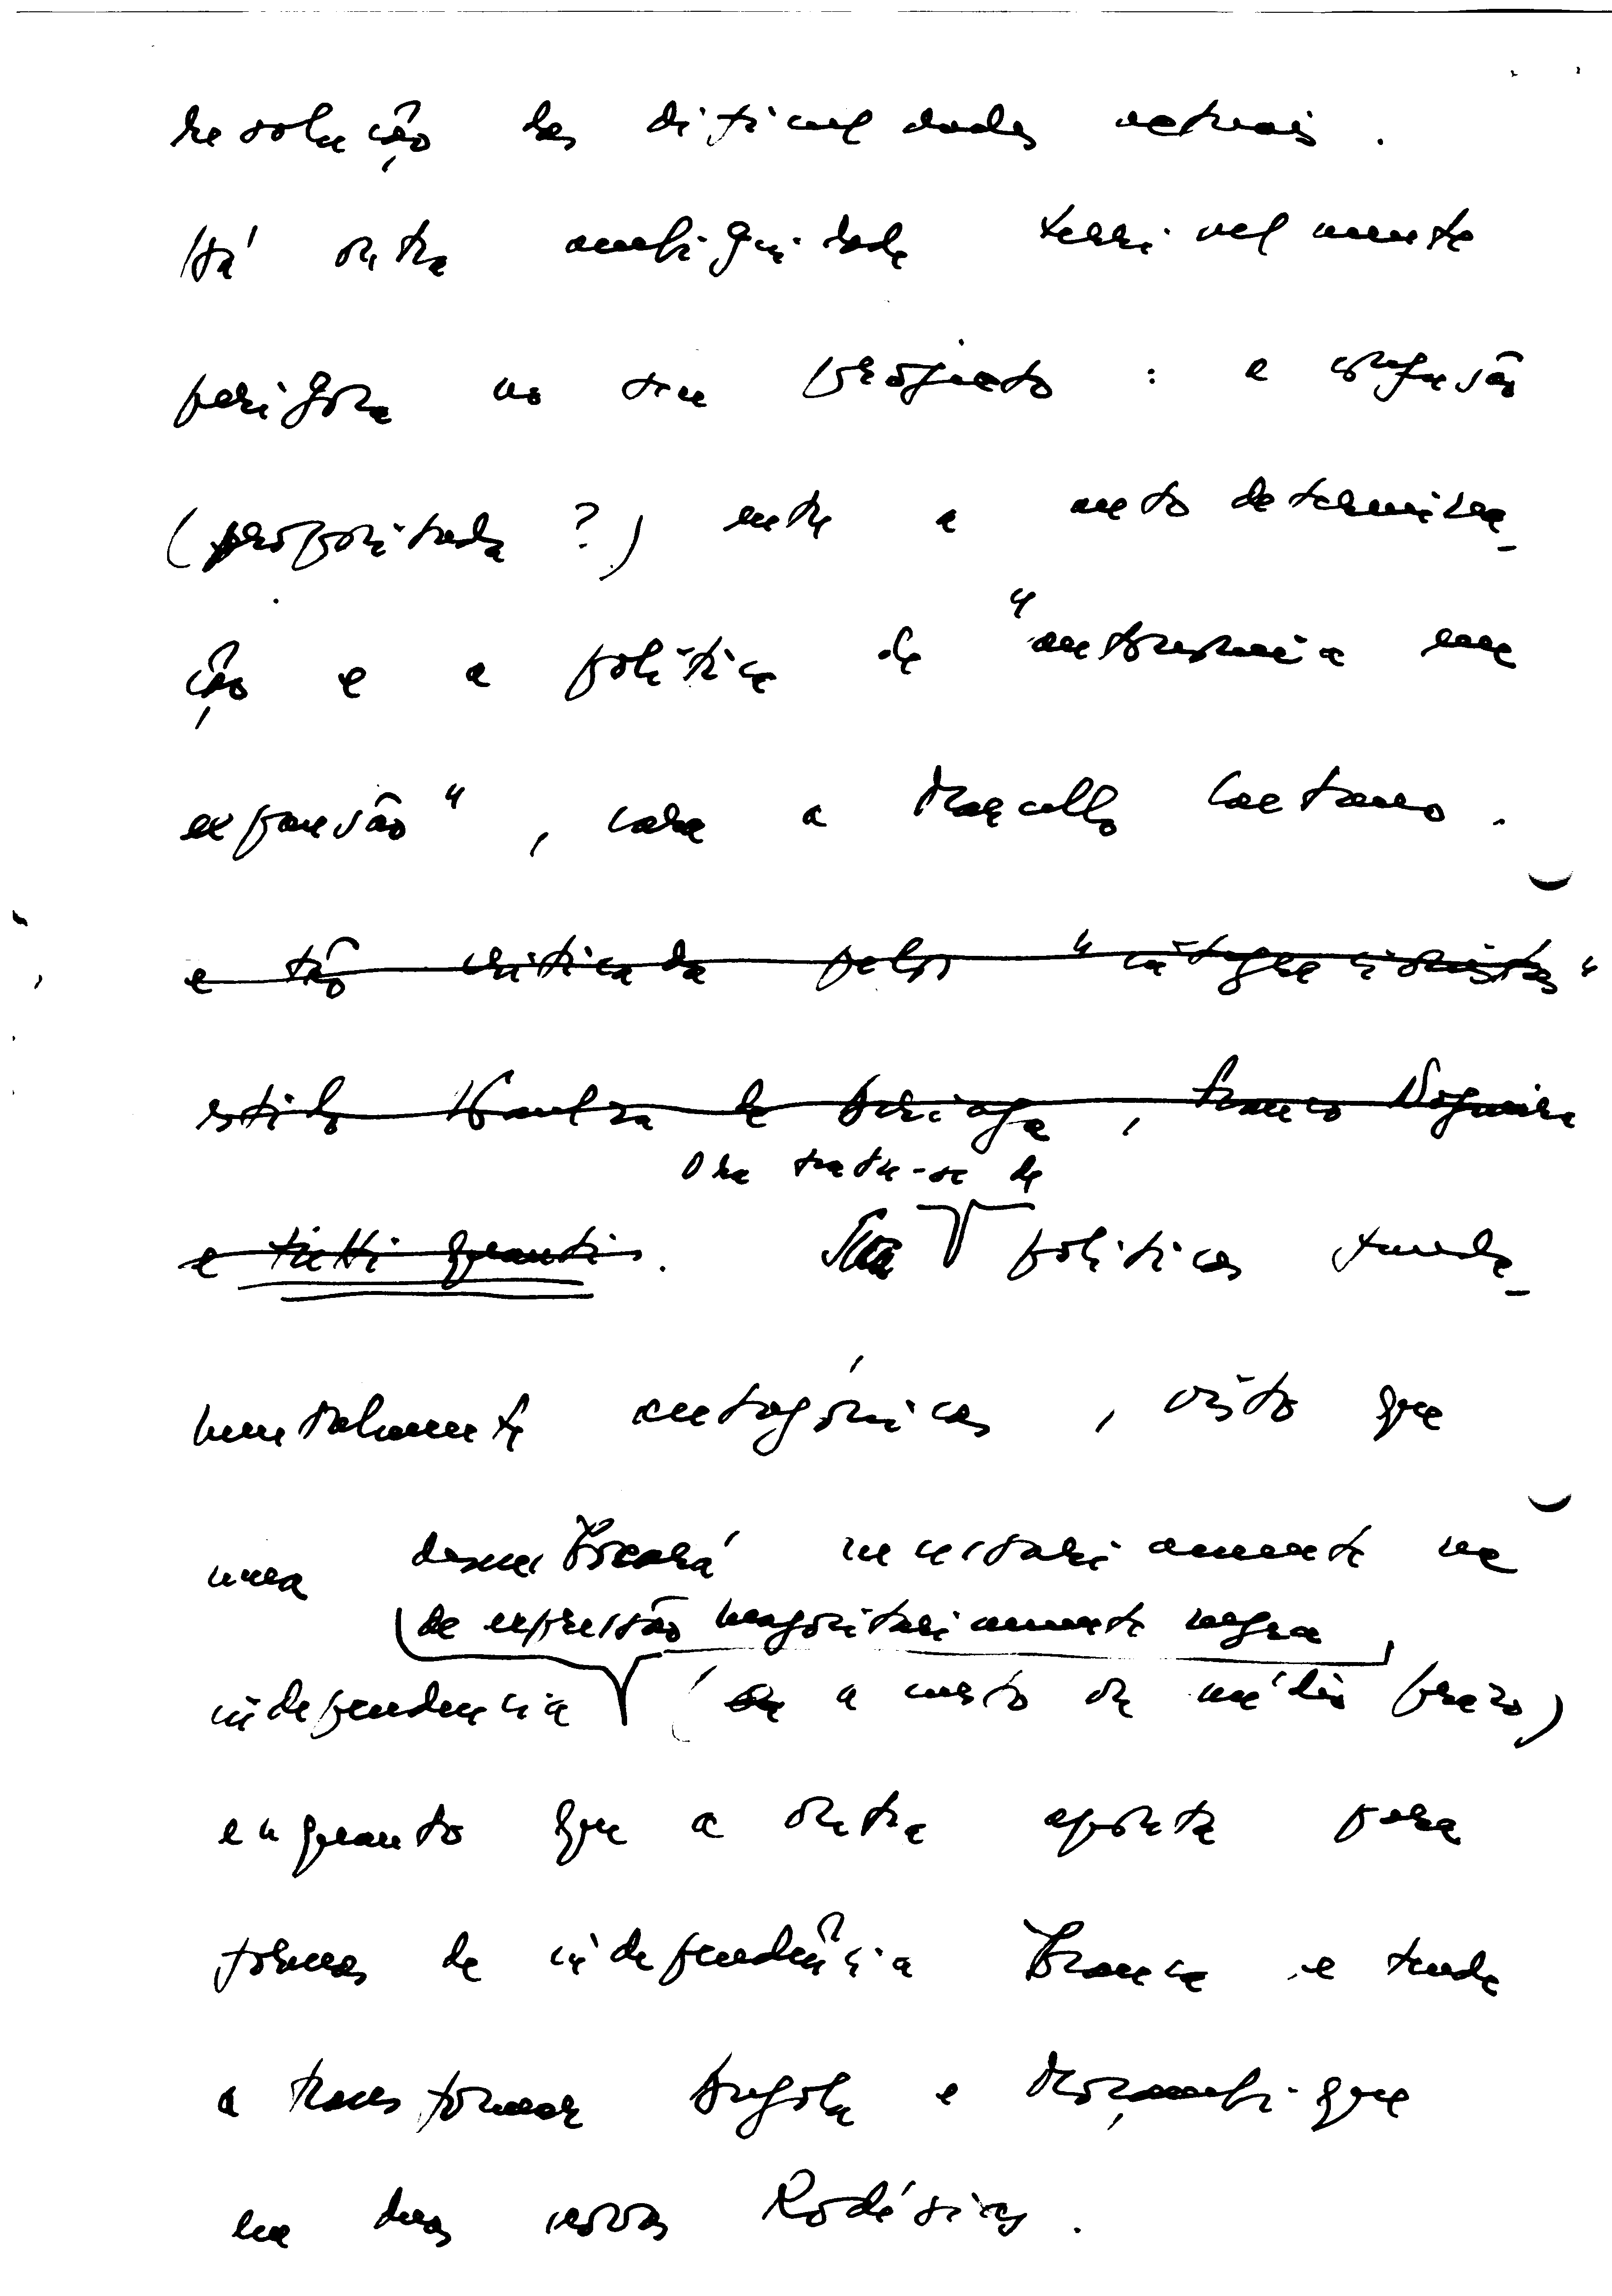 resolução das dificuldades actuais.
Há outra ambiguidade terrivelmente
perigosa no seu projecto : a confusão
(propositada ?) entre a autodetermina-
ção e a política de "autonomia em
expansão", cara a Marcello Caetano.
e tão criticada pelos "integracionistas"
estilo Kaulza de Arriaga, Franco Nogueira
e tutti quanti.
Ora trata-se de
políticas funda-
mentalmente antagónicas, visto que
uma desembocará necessariamente na
de expressão majoritariamente negra
independencia (a curto ou médio prazo)
enquanto que a outra aponta para
formas de independência branca e tende
a transformar Angola e Moçambique
em duas novas Rodésias.